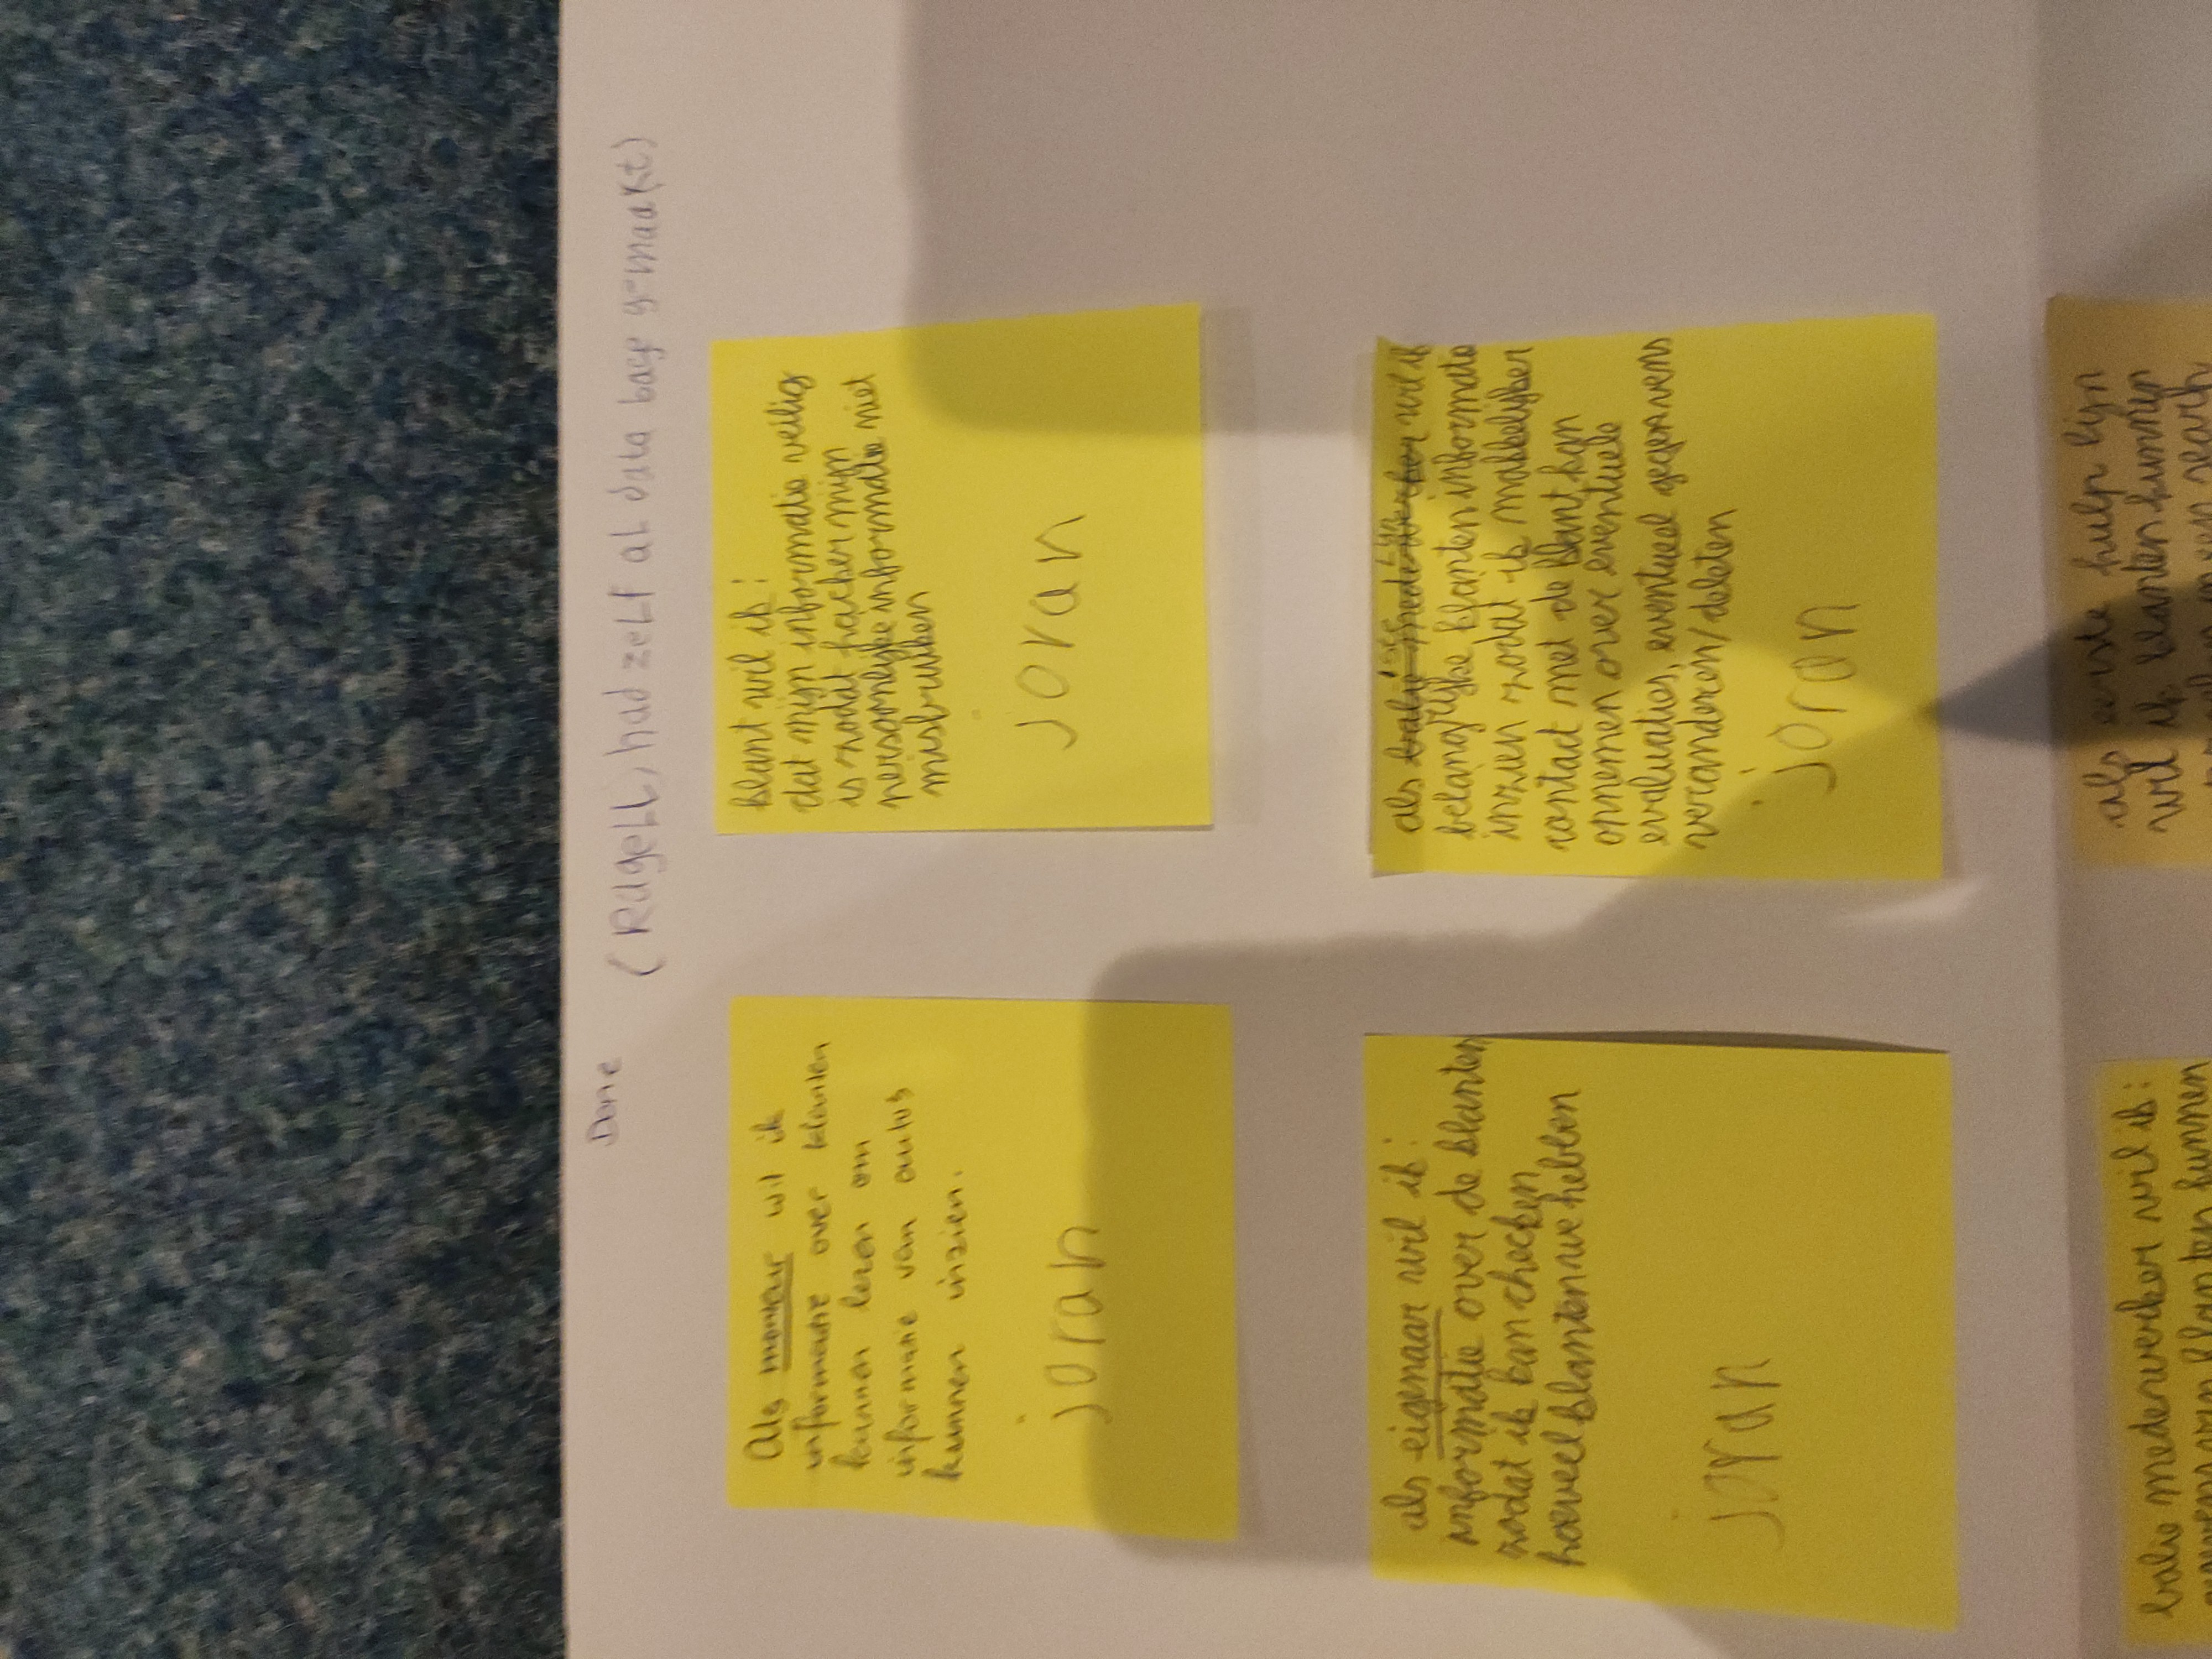 Done
(Ragell, had zelf al data base gemaakt)
Als monteur wil ik
informatie over klanten
kunnen lezen om
informatie van auto's
kunnen inzien.
joran
klant wil ik:
dat mijn informatie veilig
is zodat hacker mijn
persoonlijke informatie niet
misbruiken
joran
als eigenaar wil ik:
informatie over de klanten
zodat ik kan checken
hoeveel klanten we hebben
joran
als balie medewerker wil ik
belangrijke klanten informatie
inzien zodat ik makkelijker
contact met de klant kan
opnemen over eventuele
evaluaties, eventueel gegevens
veranderen/deleten
joran
balie medewerker wil ik:
gegevens van klanten kunnen
als eerste hulp lijn
wil ik klanten kunnen
in een search